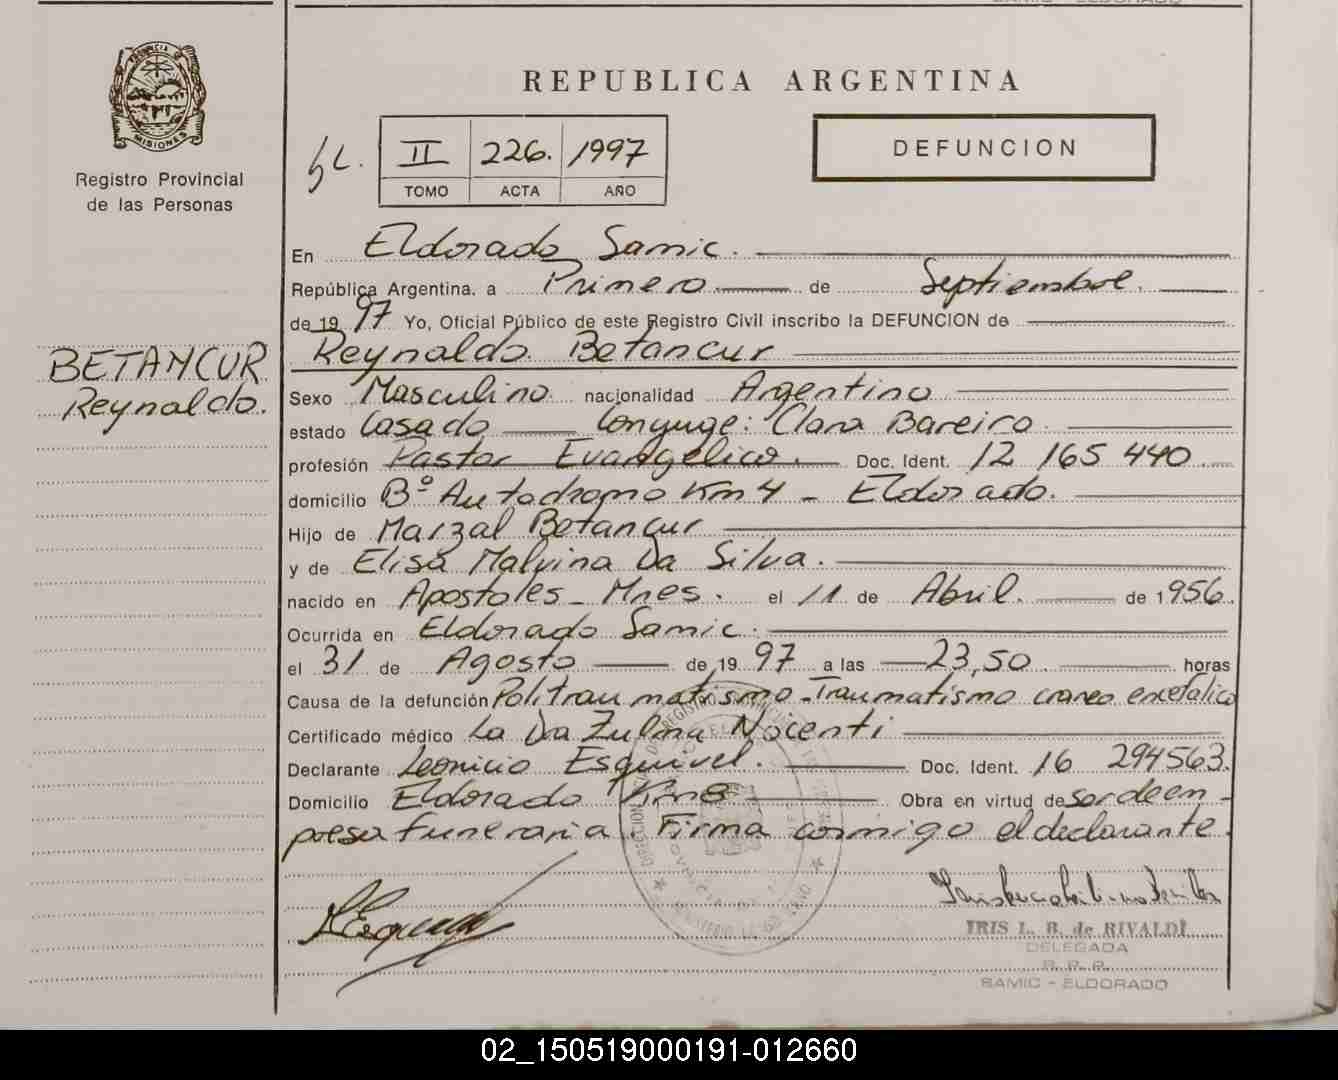 REPUBLICA ARGENTINA
PROVINCIA DE
MISIONES
Registro Provincial
de las Personas
II 226. 1997
TOMO ACTA AÑO
DEFUNCION
En Eldorado Samic.
República Argentina, a Primero de Septiembre.
de 1997 Yo, Oficial Público de este Registro Civil inscribo la DEFUNCION de
BETANCUR
Reynaldo.
Reynaldo Betancur
Sexo Masculino nacionalidad Argentino
estado Casado Conyuge: Clara Bareiro
profesión Pastor Evangelico. Doc. Ident. 12 165 440
domicilio Bº Autodromo Km 4 - Eldorado.
Hijo de Marzal Betancur
y de Elisa Malvina Da Silva.
nacido en Apostoles - Mnes. el 11 de Abril. de 1956.
Ocurrida en Eldorado Samic.
el 31 de Agosto de 1997 a las 23,50 horas
Causa de la defunción Politraumatismo - Traumatismo craneo encefalico
Certificado médico La Dra Zulma Nocenti
Declarante Leonicio Esquivel. Doc. Ident. 16 294563.
Domicilio Eldorado Km 8 Obra en virtud de ser de em-
presa funeraria. Firma conmigo el declarante.
IRIS L. B. de RIVALDI
DELEGADA
R. P. P.
SAMIC - ELDORADO
02_150519000191-012660